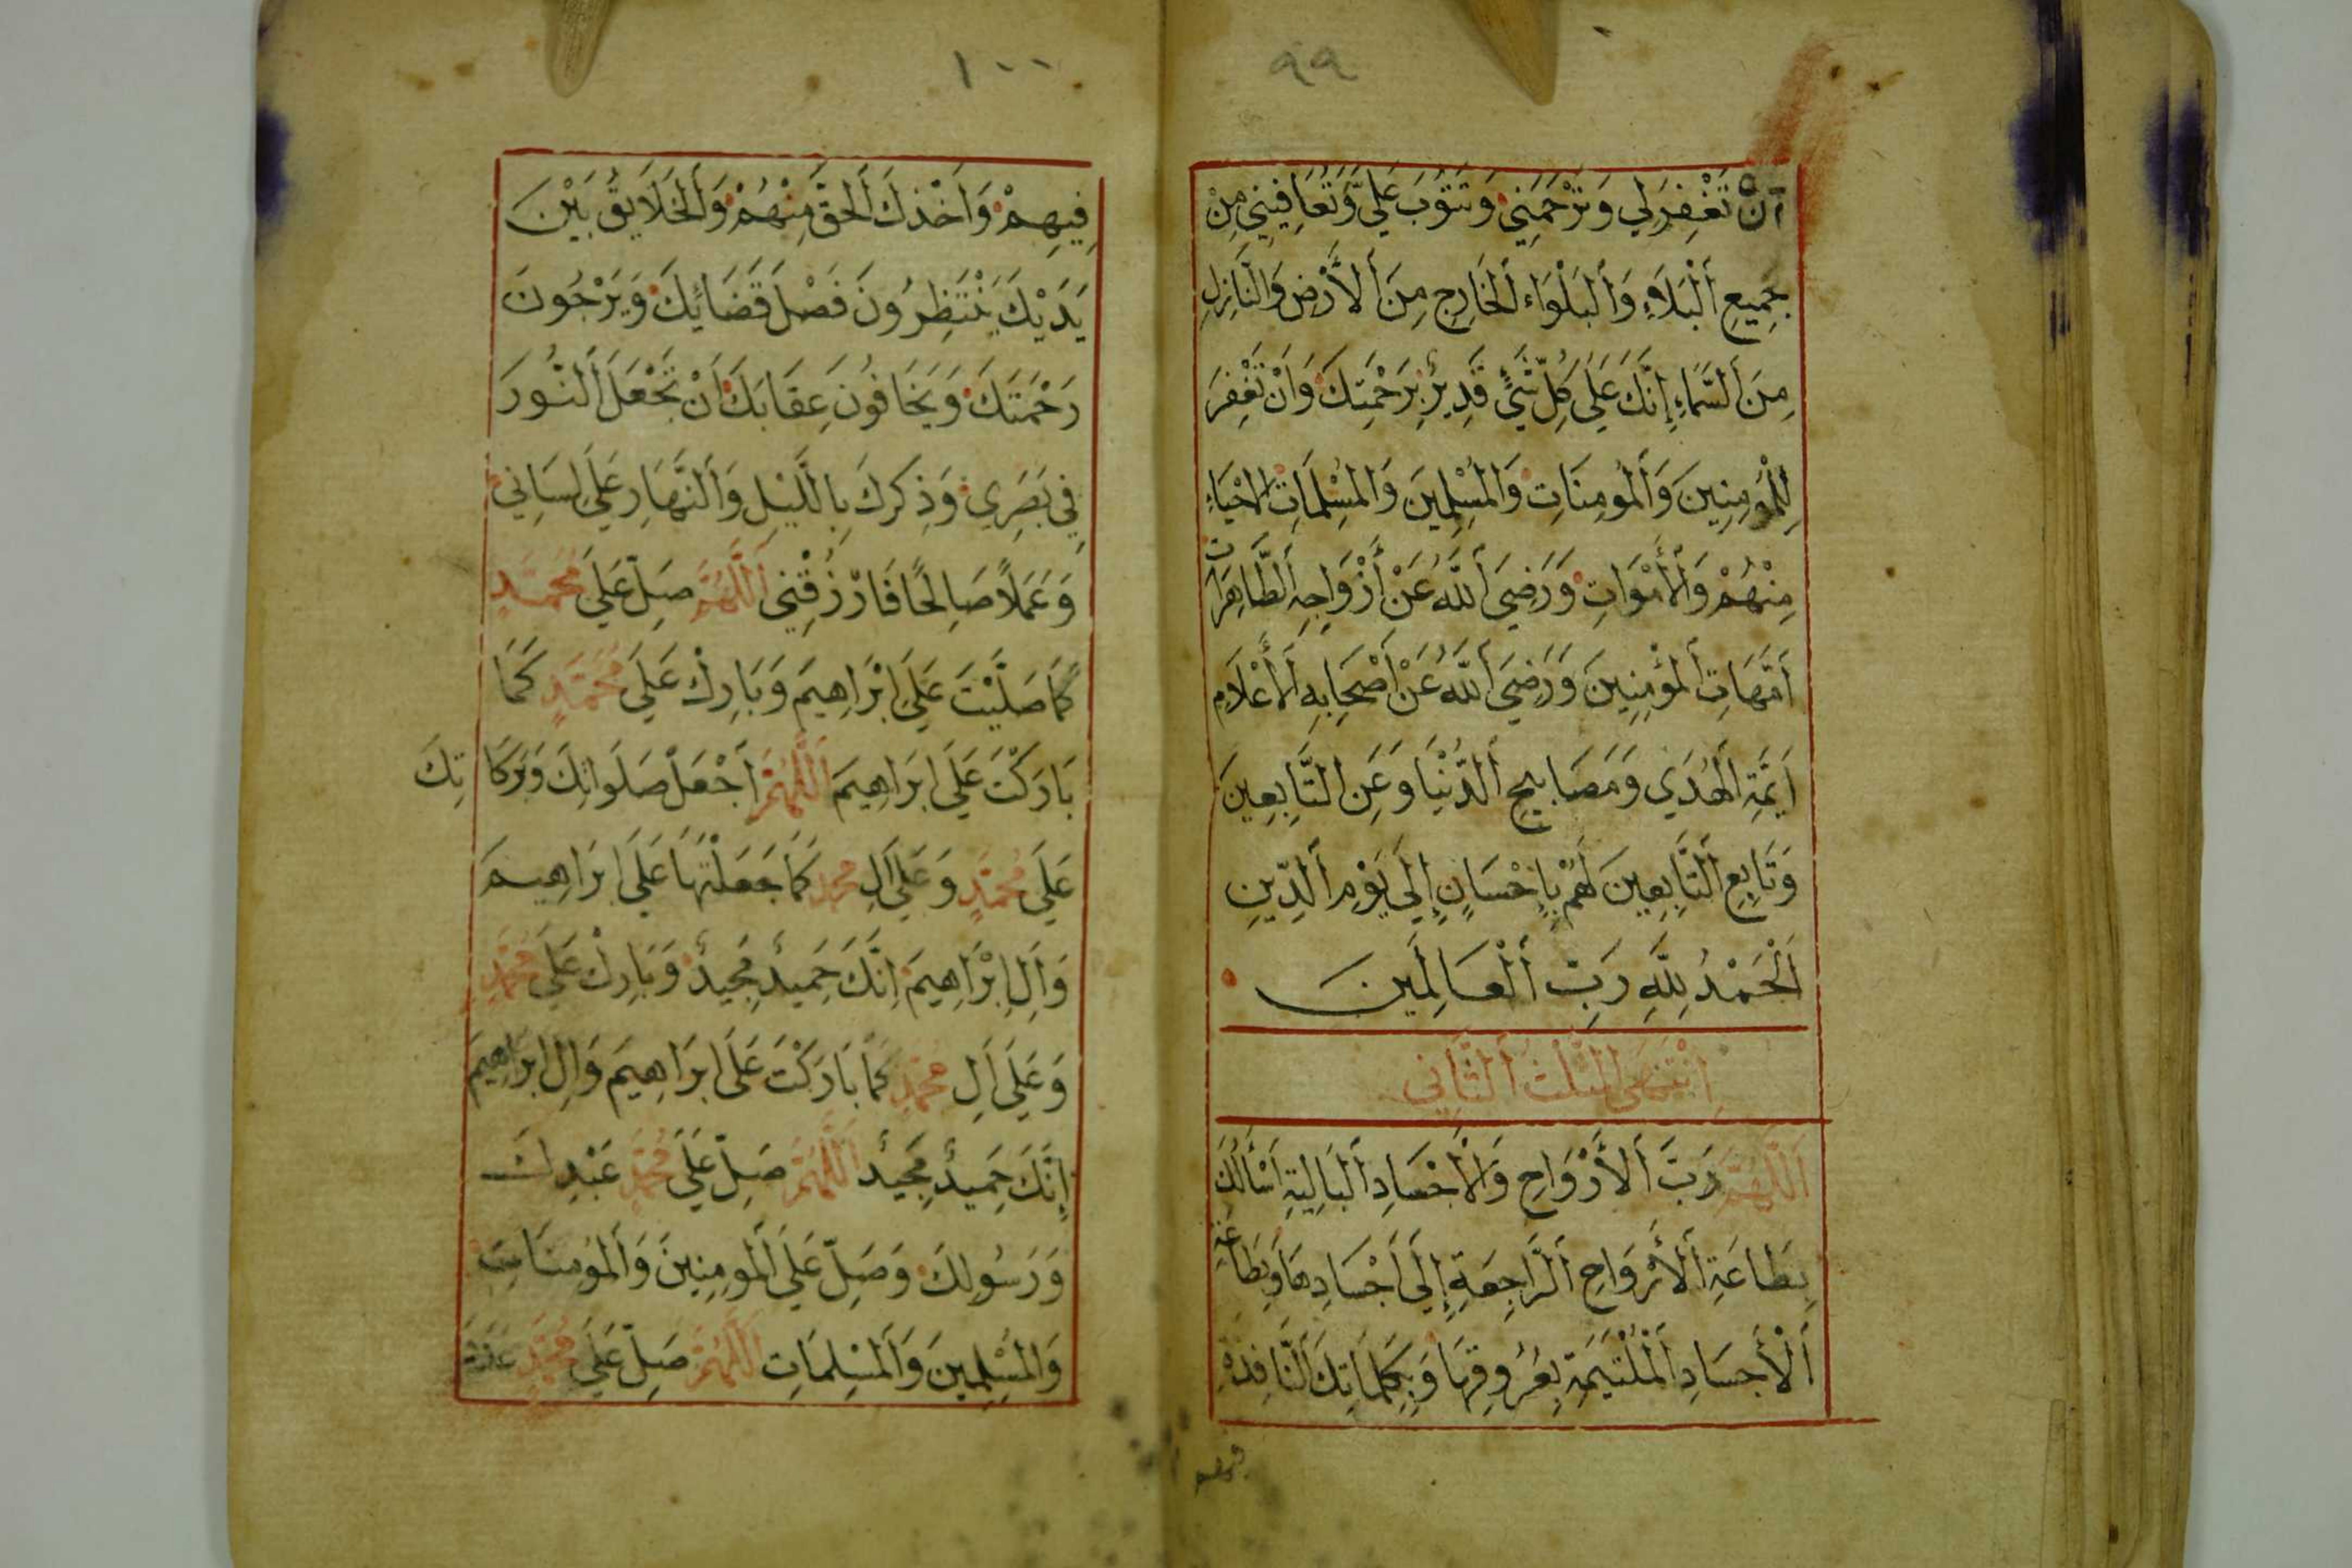 ٩٩
أَنْ تَغْفِرَ لِي وَتَرْحَمَنِي وَتَتُوبَ عَلَيَّ وَتُعَافِينِي مِنْ
جَمِيعِ أَلْبَلَاءِ وَأَلْبَلْوَاء أَلْخَارِجِ مِنَ أَلْأَرْضِ وَالنَّازِلِ
مِنَ أَلسَّمَاءِ إِنَّكَ عَلَى كُلِّ شَيْءٍ قَدِيرٌ بِرَحْمَتِكَ وَأَنْ تَغْفِرَ
لِلْمُؤمِنِينَ وَأَلْمُومِنَاتِ وَالْمُسْلِمِينَ وَالْمُسْلِمَاتِ الاحْيَاءِ
مِنْهُمْ وَالأَمْوَاتِ وَرَضِيَ أَللَّهُ عَنْ أَزْوَاجِهِ الطَّاهِرَات
أُمَّهَاتِ أَلْمُؤْمِنِينَ وَرَضِيَ أَللَّهُ عَنْ أَصْحَابِهِ أَلْأَعْلَامِ
أَيِمَّةِ الْهُدَي وَمَصَابِيحِ أَلدُّنْيَا وَعَنِ التَّابِعِينَ
وَتَابِعِ أَلتَّابِعِينَ لَهُمْ بِإِحْسَانٍ إِلَى يَوْمِ أَلدِّينِ
أَلْحَمْدُ لِلَّهِ رَبِّ أَلْعَالَمِينَ
إِنْتَهَى الثُّلُثُ أَلثَّانِي
أَللَّهُمَّ رَبَّ أَلأَرْوَاحِ وَالأَجْسَادِ أَلْبَالِيَةِ أَسْأَلُكَ
بِطَاعَةِ أَلأَرْوَاحِ أَلرَّاجِعَةِ إِلَى أَجْسَادِهَا وَبِطَاعَةِ
أَلْأَجْسَادِ أَلْمُلْتَئِمَةِ بِعُرُوقِهَا وَبِكَلِمَاتِكَ أَلنَّافِذَةِ
فيهم
١٠٠
فِيهِمْ وَأَخْذِكَ أَلْحَقَّ مِنْهُمْ وَأَلْخَلَايِقُ بَيْنَ
يَدَيْكَ يَنْتَظِرُونَ فَصْلَ قَضَائِكَ وَيَرْجُونَ
رَحْمَتَكَ وَيَخَافُونَ عِقَابَكَ أَنْ تَجْعَلَ أَلنُّورَ
فِي بَصَرِي وَذِكْرَكَ بِاللَّيْلِ وَأَلنَّهَارِ عَلَى لِسَانِي
وَعَمَلاً صَالِحًا فَارْزُقْنِي أَللَّهُمَّ صَلِّ عَلَى مُحَمَّدٍ
كَمَا صَلَّيْتَ عَلَى إبْرَاهِيمَ وَبَارِكْ عَلَى مُحَمَّدٍ كَمَا
بَارَكْتَ عَلَى ابْرَاهِيمَ أَللَّهُمَّ أَجْعَلْ صَلَوَاتِكَ وَبَرَكَاتِكَ
عَلَى مُحَمَّدٍ وَعَلَى اَلِ محمد كَمَا جَعَلْتَهَا عَلَى ابْرَاهِيمَ
وَاَلِ إِبْرَاهِيمَ إِنَّكَ حَمِيدٌ مَجِيدٌ وَبَارِكْ عَلَى مُحَمَّدٍ
وَعَلَى اَلِ مُحَمَّدٍ كَمَا بَارَكْتَ عَلَى ابْرَاهِيمَ وَالِ ابْرَاهِيمَ
إِنَّكَ حَمِيدٌ مَجِيدٌ أَللَّهُمَّ صَلِّ عَلَى مُحَمَّدٍ عَبْدِكَ
وَرَسُولِكَ وَصَلِّ عَلَى أَلْمُومِنِينَ وَأَلْمُومِنَاتِ
وَالْمُسْلِمِينَ وَأَلْمُسْلِمَاتِ أَللَّهُمَّ صَلِّ عَلَى مُحَمَّدٍ عَدَدَ